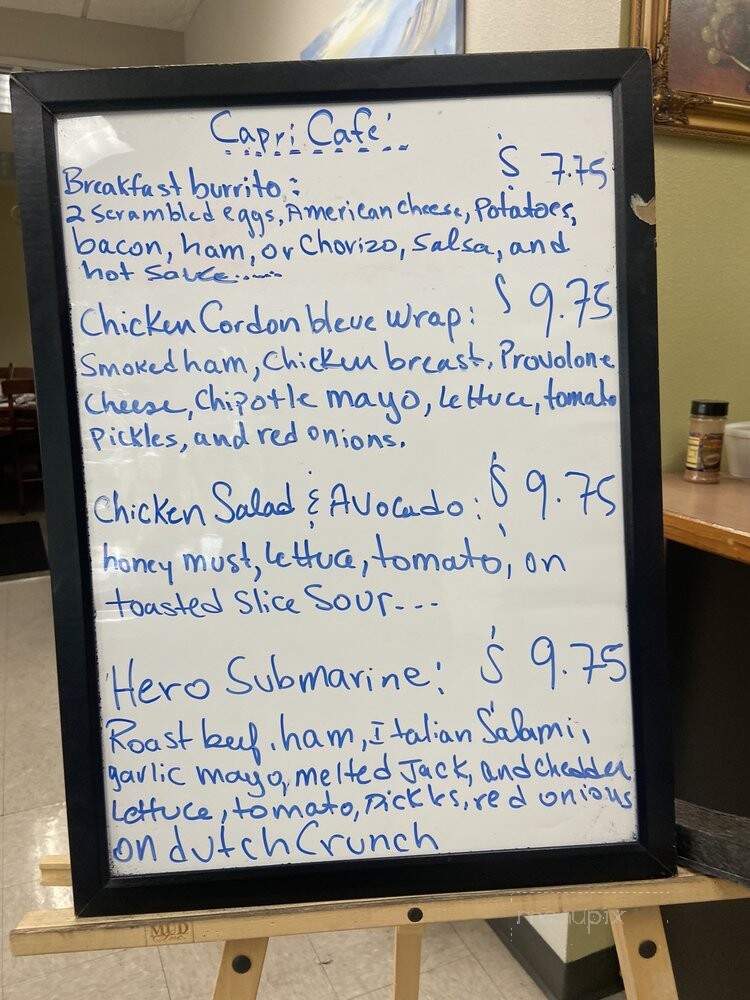 Capri Cafe'
$ 7.75
Breakfast burrito:
2 scrambled eggs, American cheese, Potatoes,
bacon, ham, or Chorizo, Salsa, and
hot sauce.....
Chicken Cordon bleue wrap: $ 9.75
Smoked ham, Chicken breast, Provolone
Cheese, Chipotle mayo, lettuce, tomato
Pickles, and red onions.
Chicken Salad & Avocado: $ 9.75
honey must, lettuce, tomato, on
toasted slice Sour---
Hero Submarine: $ 9.75
Roast beef, ham, Italian Salami,
garlic mayo, melted Jack, and chedder
Lettuce, tomato, Pickles, red onions
on dutch Crunch
MUD
menupix